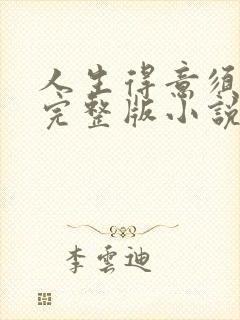 人生得意須
完整版小說
李雲迪